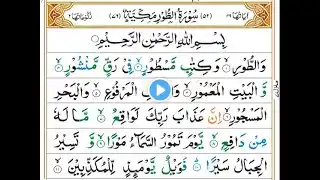 سُوْرَةُ الطُّوْرِ مَكِّيَّةٌ (۵۲) (۷۶)
بِسْمِ اللّٰهِ الرَّحْمٰنِ الرَّحِيْمِ
وَالطُّوْرِ ۙ وَكِتٰبٍ مَّسْطُوْرٍ ۙ فِيْ رَقٍّ مَّنْشُوْرٍ ۙ
وَّالْبَيْتِ الْمَعْمُوْرِ ۙ الْمَرْفُوْعِ ۙ وَالْبَحْرِ
الْمَسْجُوْرِ ۙ اِنَّ عَذَابَ رَبِّكَ لَوَاقِعٌ ۙ مَّا لَهٗ
مِنْ دَافِعٍ ۙ يَّوْمَ تَمُوْرُ السَّمَآءُ مَوْرًا ۙ وَّتَسِيْرُ
الْجِبَالُ سَيْرًا ۙ فَوَيْلٌ يَّوْمَئِذٍ لِّلْمُكَذِّبِيْنَ ۙ